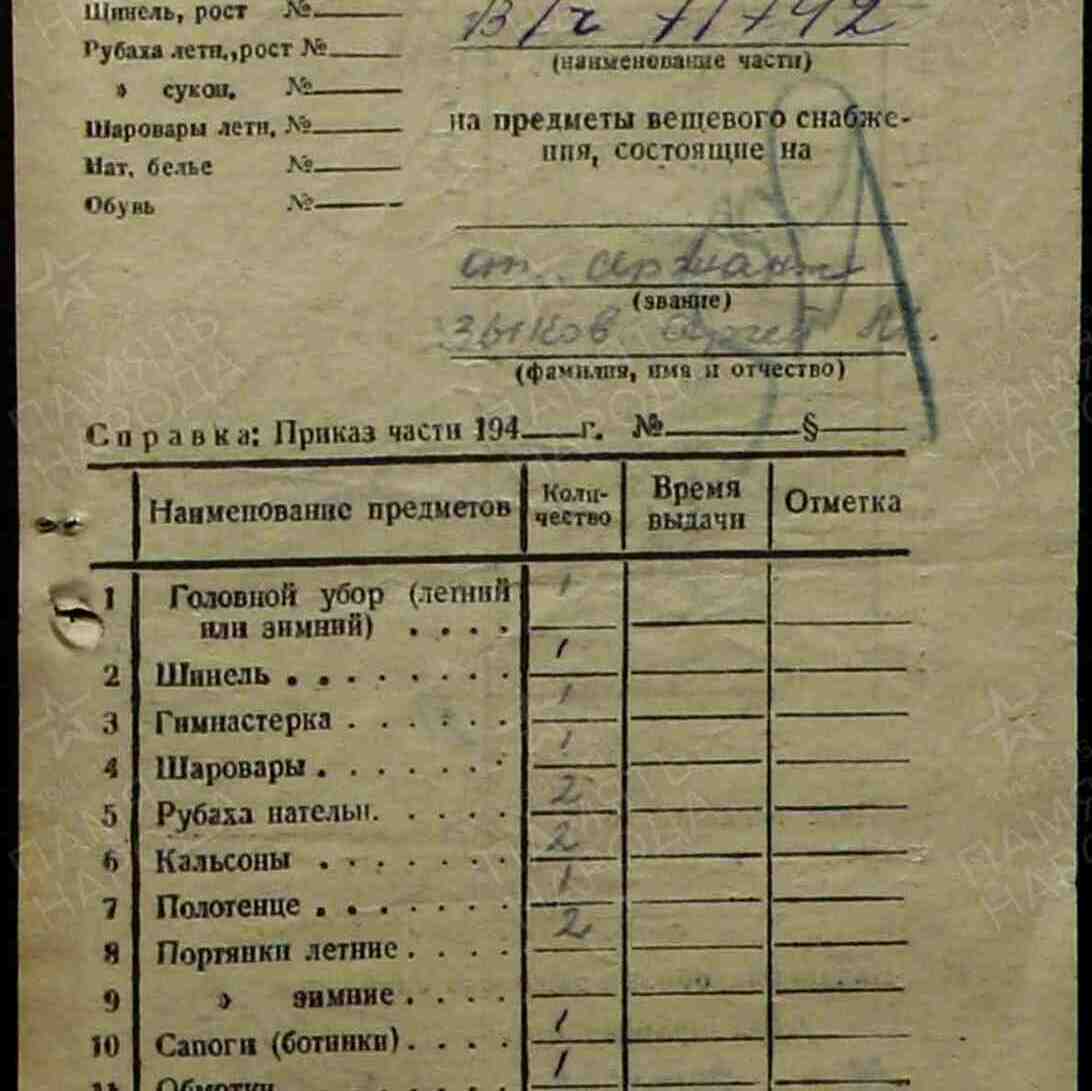 Шинель, рост №
Рубаха летн., рост №
» сукон. №
Шаровары летн. №
Нат. белье №
Обувь №
В/ч 71742
(наименование части)
на предметы вещевого снабже-
ния, состоящие на
ст. сержант
(звание)
Зыков Сергей
(фамилия, имя и отчество)
Справка: Приказ части 194 г. № §
Наименование предметов Коли-чество Время выдачи Отметка
1 Головной убор (летний
или зимний) . . . . 1
2 Шинель . . . . . . . . 1
3 Гимнастерка . . . . . . 1
4 Шаровары . . . . . . . 1
5 Рубаха нательн. . . . . 2
6 Кальсоны . . . . . . . 2
7 Полотенце . . . . . . . 1
8 Портянки летние . . . . 2
9 » зимние . . . .
10 Сапоги (ботинки) . . . . 1
11 Обмотки 1
ПАМЯТЬ НАРОДА